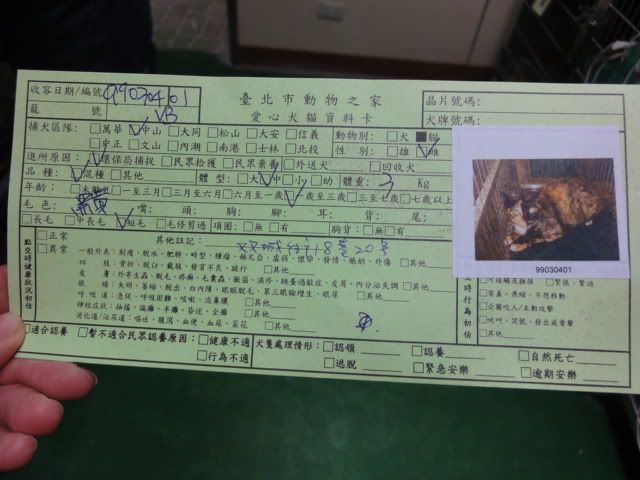 臺北市動物之家
愛心犬貓資料卡
收容日期/編號 99030401
籠號 VB
晶片號碼:
犬牌號碼:
捕犬區隊: □萬華 中山 □大同 □松山 □大安 □信義 動物別: □犬 ■貓
□中正 □文山 □內湖 □南港 □士林 □北投 性別: □雄 雌
進所原因: 環保局捕捉 □民眾拾獲 □民眾棄養 □外送犬 □回收犬
品種: 混種 □其他 體型: □大 中 □小 □幼 體重: 3 Kg
年齡: □未斷奶 □一至三月 □三月至六月 □六月至一歲 一歲至三歲 □三至七歲 □七歲以上
毛色: 嘴: 頭: 胸: 腳: 耳: 背: 尾:
□長毛 □中長毛 短毛 □毛修剪過 項圈: □無 □有 胸背: □無 □有
點交時健康狀況初估
□正常
□異常
其他註記:
一般外表: 削瘦、脫水、肥胖、畸型、腫瘤、赫尼亞、虛弱、懷孕、發情、眼奶、外傷 □其他
四肢: 骨折、脫臼、截肢、發育不良、跛行 □其他
皮膚: 外寄生蟲、脫毛、疥癬、毛囊蟲、黴菌、濕疹、跳蚤過敏症、皮屑、內分泌失調 □其他
眼睛: 失明、萎縮、脫出、白內障、眼瞼脫毛、第三眼瞼增生、眼屎 □其他
呼吸道: 急促、呼吸困難、咳嗽、流鼻膿 □其他
神經症狀: 抽搐、偏癱、半癱、昏迷、全癱 □其他
消化道/泌尿道: 嘔吐、腹瀉、血便、血尿、菜花 □其他
99030401
□可碰觸及撫摸 □緊張、緊迫
□害羞、畏縮、不想移動
□企圖咬人/主動攻擊
□吠叫、哭號、發出威脅聲
□其他
□適合認養 □暫不適合民眾認養原因: □健康不適
□行為不適
犬隻處理情形: □認領 □認養 □自然死亡
□逃脫 □緊急安樂 □逾期安樂